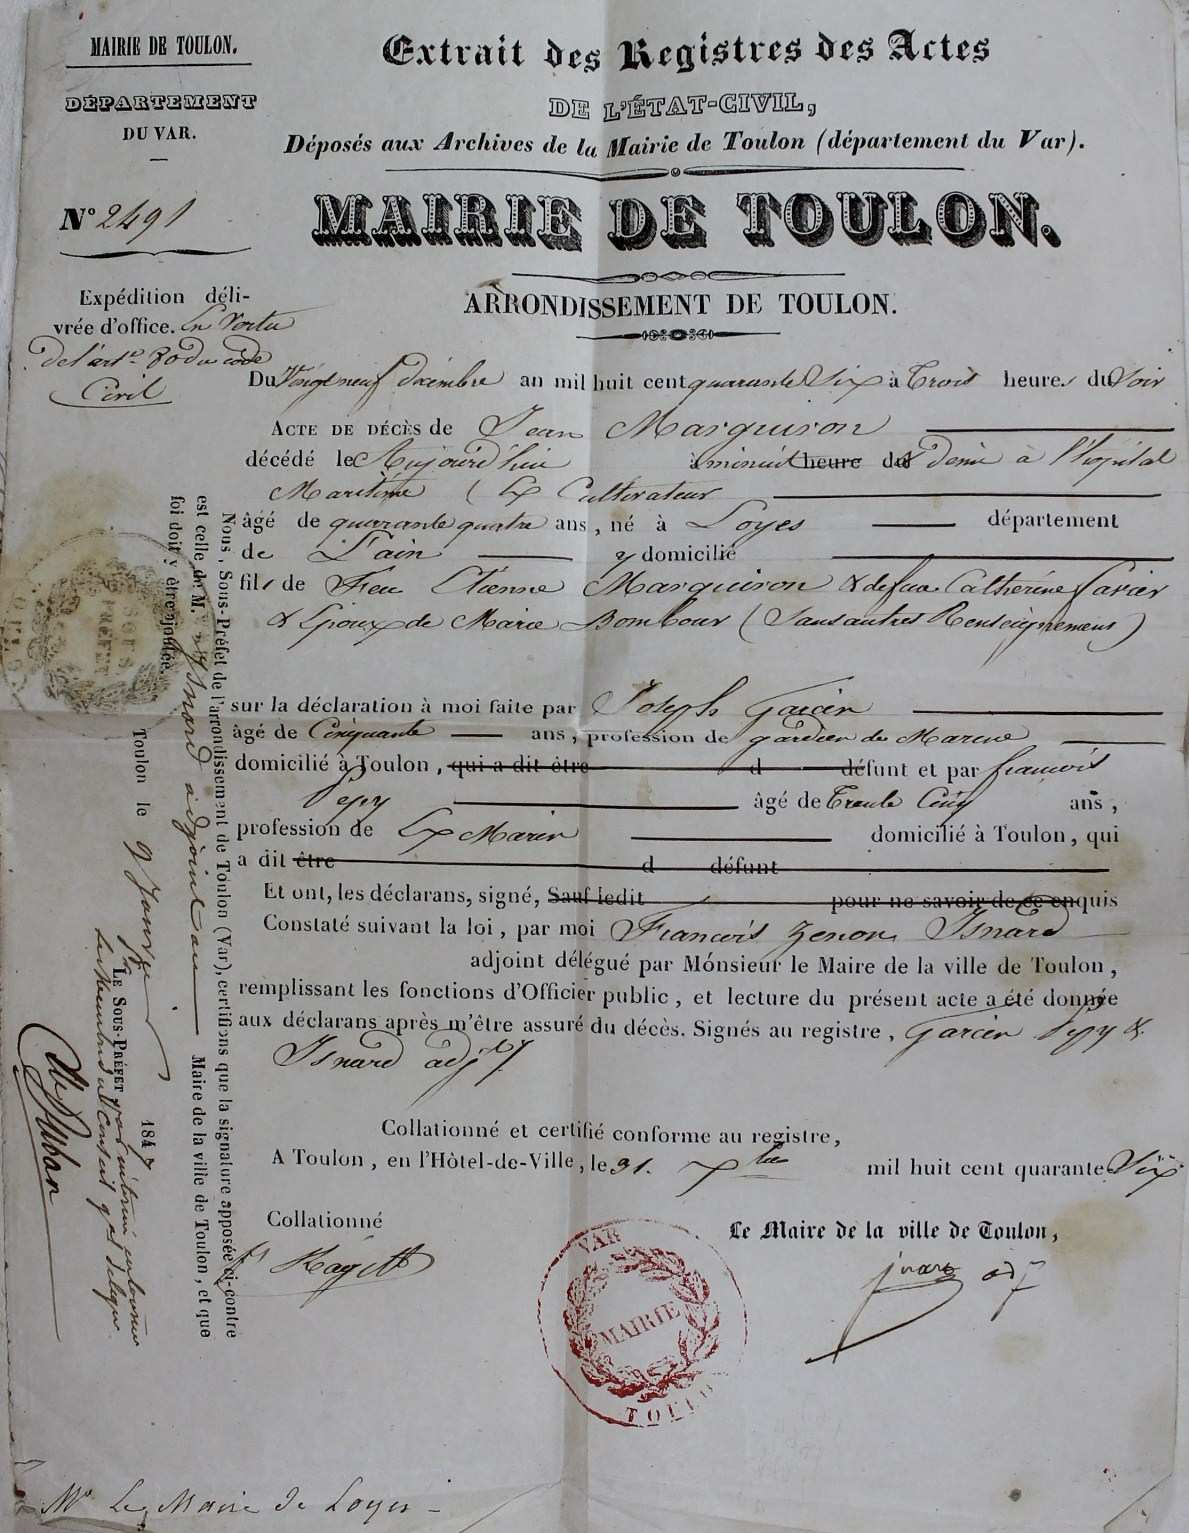 MAIRIE DE TOULON.
DÉPARTEMENT
DU VAR.
N° 2491
Expédition déli-
vrée d'office. En Vertu
de l'art. 80 du code
Civil
Extrait des Registres des Actes
DE L'ÉTAT-CIVIL,
Déposés aux Archives de la Mairie de Toulon (département du Var).
MAIRIE DE TOULON.
ARRONDISSEMENT DE TOULON.
Du Vingt neuf décembre an mil huit cent quarante Six à Trois heures du Soir
ACTE DE DÉCÈS de Jean Marguiron
décédé le Aujourd'hui à minuit heure de & demi à l'hopital
Maritime (Ex Cultivateur
âgé de quarante quatre ans, né à Loyes département
de L'ain y domicilié
fils de Feu Etienne Marguiron & de feue Catherine Cavier
& Epoux de Marie Bombour (Sans autres Renseignemens)
sur la déclaration à moi faite par Joseph Garcin
âgé de Cinquante ans, profession de gardien de Marine
domicilié à Toulon, qui a dit être d défunt et par françois
Pepy âgé de Trente Cinq ans,
profession de Ex Marin domicilié à Toulon, qui
a dit être d défunt
Et ont, les déclarans, signé, Sauf ledit pour ne savoir de ce enquis
Constaté suivant la loi, par moi François Zenon Isnard
adjoint délégué par Monsieur le Maire de la ville de Toulon,
remplissant les fonctions d'Officier public, et lecture du présent acte a été donnée
aux déclarans après m'être assuré du décès. Signés au registre, Garcin Pepy &
Isnard adjt
Collationné et certifié conforme au registre,
A Toulon, en l'Hôtel-de-Ville, le 31. Xbre mil huit cent quarante Six
Collationné
Le Maire de la ville de Toulon,
Isnard adj
VAR
MAIRIE
TOULON
Nous, Sous-Préfet de l'arrondissement de Toulon (Var), certifions que la signature apposée ci-contre
est celle de M. Isnard adjoint au Maire de la ville de Toulon, et que
foi doit y être ajoutée.
Toulon le 9 Janvier 1847
LE SOUS-PRÉFET par intérim
Le Membre du Conseil gal délégué
SOUS
PRÉFET
Mr Le Maire de Loyes